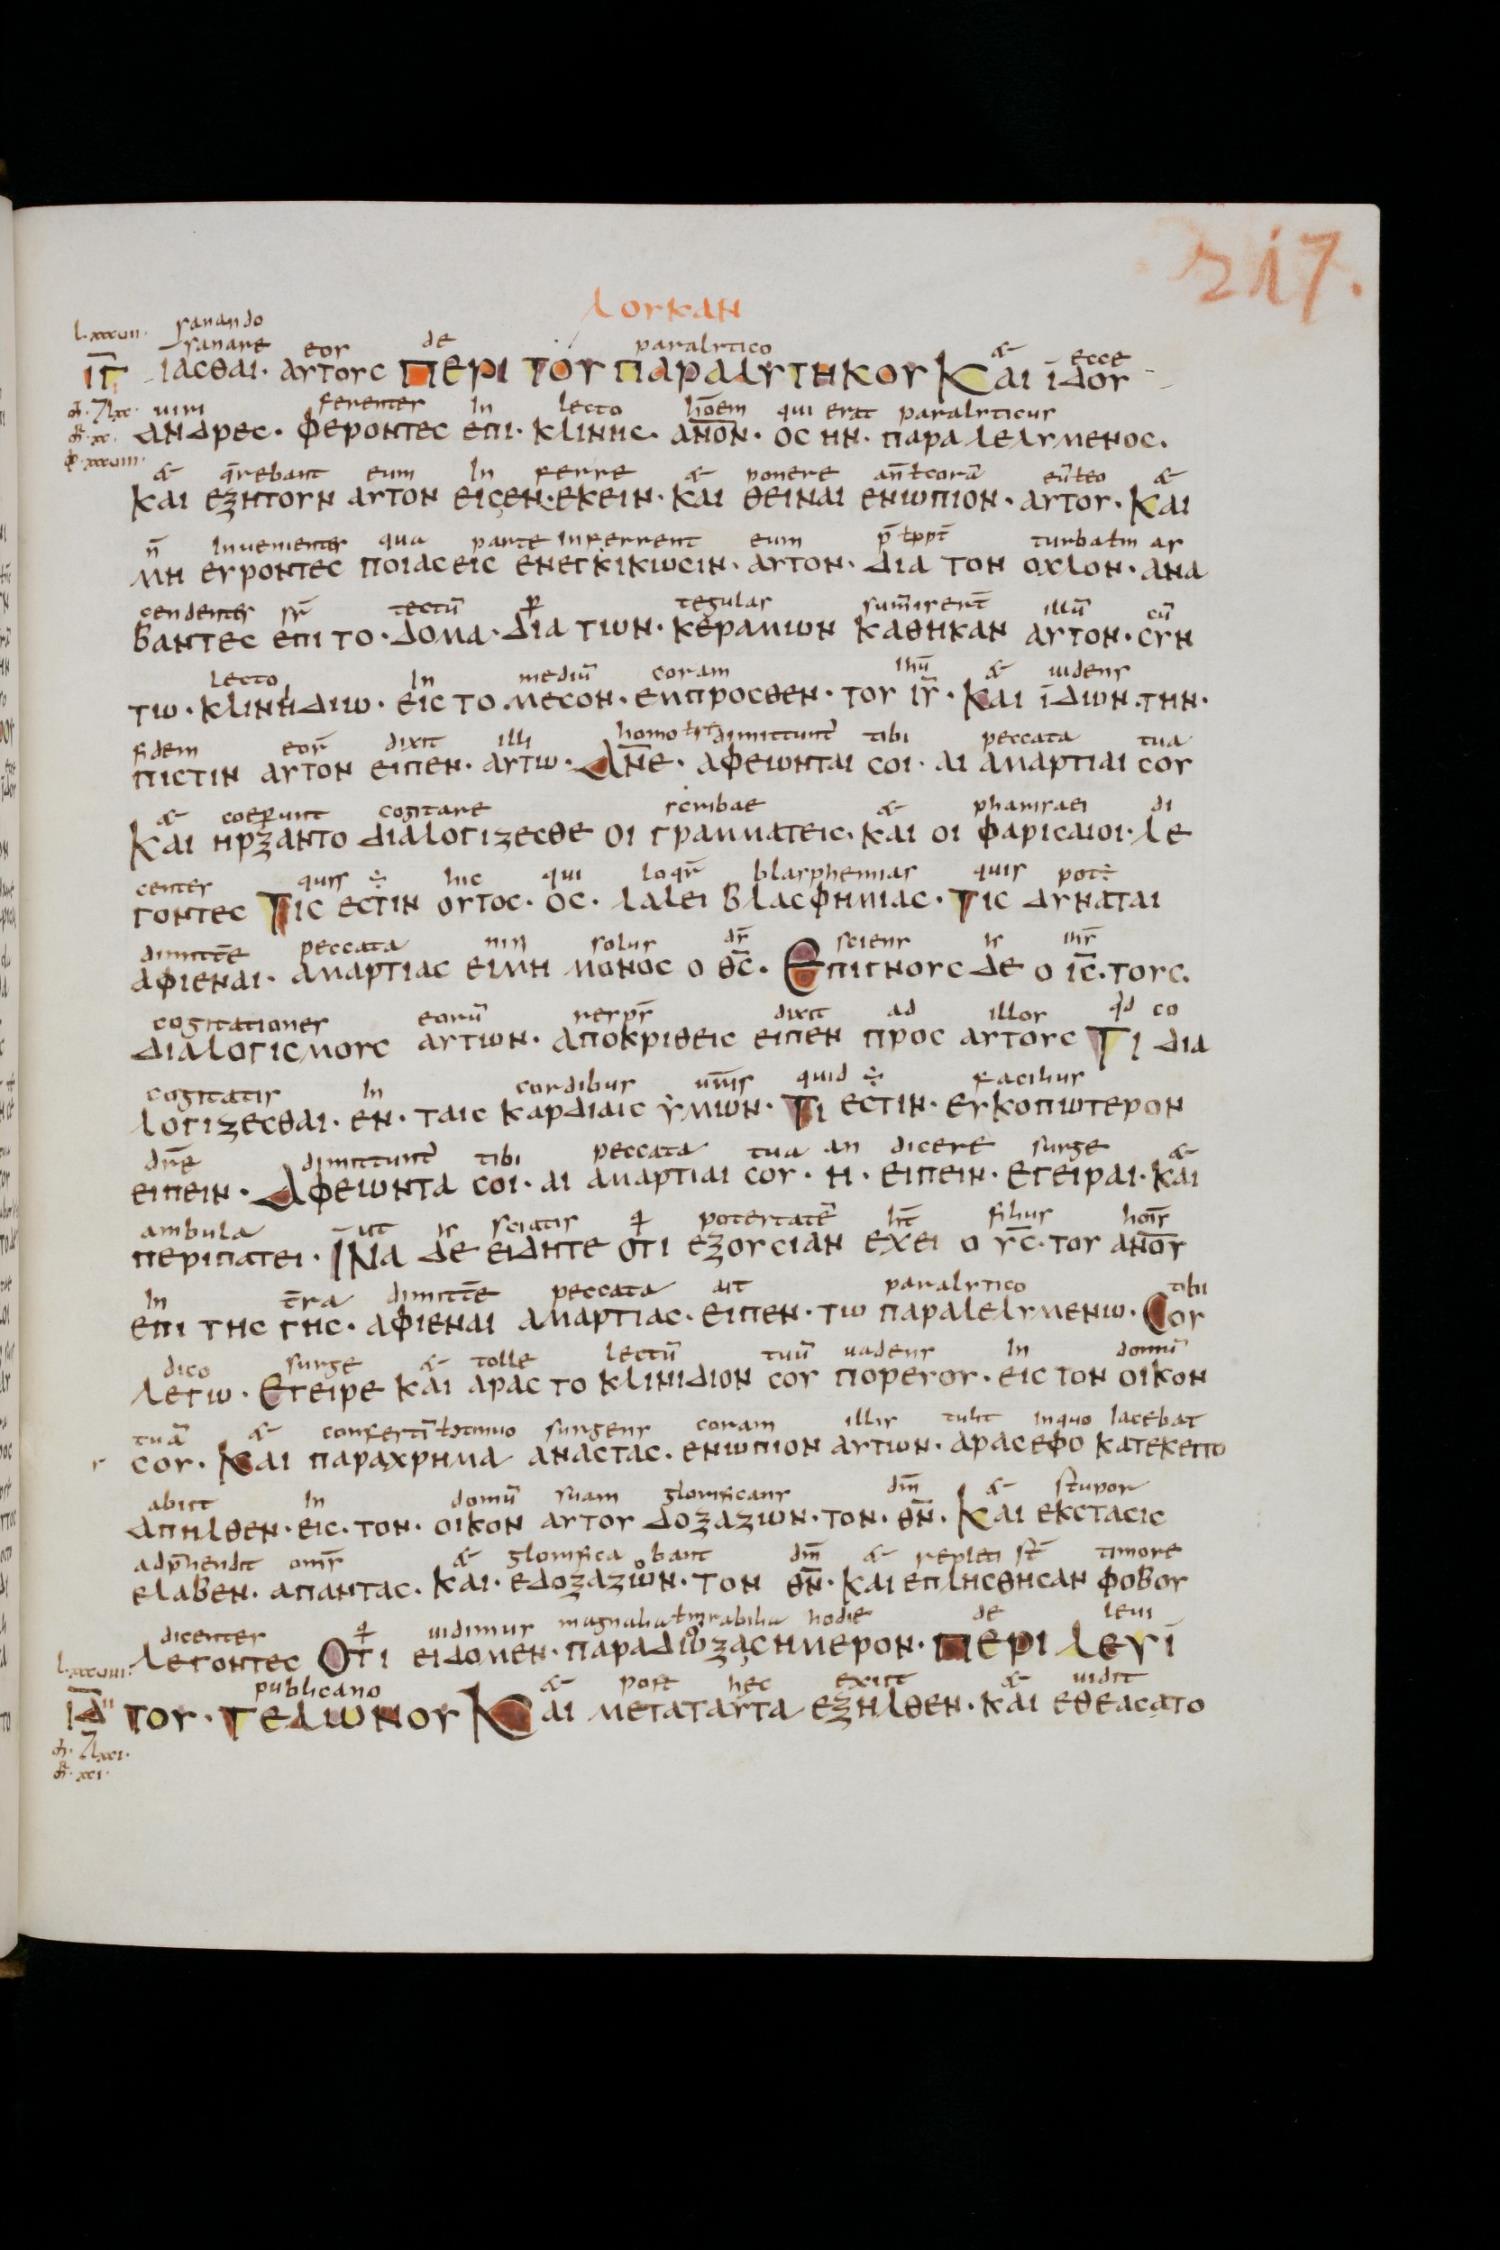 217.
ΛΟΥΚΑΝ
sanando
sanare eos de paralytico & ecce
ΙΓ ΙΑCΘΑΙ· ΑΥΤΟΥC ΠΕΡΙ ΤΟΥ ΠΑΡΑΛΥΤΗΚΟΥ ΚΑΙ ΙΔΟΥ
uiri ferentes in lecto hōem qui erat paralyticus
ΑΝΔΡΕC· ΦΕΡΟΝΤΕC ΕΠΙ· ΚΛΙΝΗC· ΑΝΟΝ· ΟC ΗΝ· ΠΑΡΑΛΕΛΥΜΕΝΟC·
& q̄rebant eum in ferre & ponere &
ΚΑΙ ΕΖΗΤΟΥΝ ΑΥΤΟΝ ΕΙCΕΝ·ΕΚΕΙΝ· ΚΑΙ ΘΕΙΝΑΙ ΕΝΩΠΙΟΝ· ΑΥΤΟΥ· ΚΑΙ
n̄ inuenientes qua parte inferrent eum turba as
ΜΗ ΕΥΡΟΝΤΕC ΠΟΙΑCΕΙC ΕΝΕΓΚΙΚΩCΙΝ· ΑΥΤΟΝ· ΔΙΑ ΤΟΝ ΟΧΛΟΝ· ΑΝΑ
cendentes tectū tegulas illū cū
ΒΑΝΤΕC ΕΠΙ ΤΟ· ΔΟΜΑ· ΔΙΑ ΤΩΝ· ΚΕΡΑΜΩΝ ΚΑΘΗΚΑΝ ΑΥΤΟΝ· CΥΝ
lecto in mediū coram ihū & uidens
ΤΩ· ΚΛΙΝΗΔΙΩ· ΕΙC ΤΟ ΜΕCΟΝ· ΕΜΠΡΟCΘΕΝ· ΤΟΥ ΙΥ· ΚΑΙ ΙΔΩΝ·ΤΗΝ·
fidem dixit illi homo tibi peccata tua
ΠΙCΤΙΝ ΑΥΤΟΝ ΕΙΠΕΝ· ΑΥΤΩ· ΑΝΕ· ΑΦΕΩΝΤΑΙ CΟΙ· ΑΙ ΑΜΑΡΤΙΑΙ CΟΥ
& coeperunt cogitare scribae & pharisaei di
ΚΑΙ ΗΡΞΑΝΤΟ ΔΙΑΛΟΓΙΖΕCΘΕ ΟΙ ΓΡΑΜΜΑΤΕΙC· ΚΑΙ ΟΙ ΦΑΡΙCΑΙΟΙ· ΛΕ
centes quis ÷ hic qui loqr̄ blasphemias quis pot÷
ΓΟΝΤΕC ΤΙC ΕCΤΙΝ ΟΥΤΟC· ΟC· ΛΑΛΕΙ ΒΛΑCΦΗΜΙΑC· ΤΙC ΔΥΝΑΤΑΙ
dimitt̄e peccata nisi solus dr̄ sciens is ihs̄
ΑΦΙΕΝΑΙ· ΑΜΑΡΤΙΑC ΕΙΜΗ ΜΟΝΟC Ο ΘC· ΕΠΙΓΝΟΥC ΔΕ Ο ΙC· ΤΟΥC·
cogitationes eorū resps̄ dixit ad illos qd co
ΔΙΑΛΟΓΙCΜΟΥC ΑΥΤΩΝ· ΑΠΟΚΡΙΘΕΙC ΕΙΠΕΝ ΠΡΟC ΑΥΤΟΥC ΤΙ ΔΙΑ
cogitatis in cordibus ur̄is quid ÷ facilius
ΛΟΓΙΖΕCΘΑΙ· ΕΝ· ΤΑΙC ΚΑΡΔΙΑΙC ΥΜΩΝ· ΤΙ ΕCΤΙΝ· ΕΥΚΟΠΩΤΕΡΟΝ
dr̄e dimittunt̄ tibi peccata tua an dicere surge &
ΕΙΠΕΙΝ· ΑΦΕΩΝΤΑ CΟΙ· ΑΙ ΑΜΑΡΤΙΑΙ CΟΥ· Η· ΕΙΠΕΙΝ· ΕΓΕΙΡΑΙ· ΚΑΙ
ambula ut is sciatis potestatē filius hois̄
ΠΕΡΙΠΑΤΕΙ· ΙΝΑ ΔΕ ΕΙΔΗΤΕ ΟΤΙ ΕΞΟΥCΙΑΝ ΕΧΕΙ Ο ΥC· ΤΟΥ ΑΝΟΥ
in t̄ra dimitt̄e peccata ait paralytico tibi
ΕΠΙ ΤΗC ΓΗC· ΑΦΙΕΝΑΙ ΑΜΑΡΤΙΑC· ΕΙΠΕΝ· ΤΩ ΠΑΡΑΛΕΛΥΜΕΝΩ· CΟΥ
dico surge & tolle lectū tuū uadens in domū
ΛΕΓΩ· ΕΓΕΙΡΕ ΚΑΙ ΑΡΑC ΤΟ ΚΛΙΝΙΔΙΟΝ CΟΥ ΠΟΡΕΥΟΥ· ΕΙC ΤΟΝ ΟΙΚΟΝ
tuā & confestī surgens coram illis tulit inquo iacebat
CΟΥ· ΚΑΙ ΠΑΡΑΧΡΗΜΑ ΑΝΑCΤΑC· ΕΝΩΠΙΟΝ ΑΥΤΩΝ· ΑΡΑCΕΦΟ ΚΑΤΕΚΕΙΤΟ
abiit in domū suam glorificans dm̄ & stupor
ΑΠΗΛΘΕΝ· ΕΙC· ΤΟΝ· ΟΙΚΟΝ ΑΥΤΟΥ ΔΟΞΑΖΩΝ· ΤΟΝ· ΘΝ· ΚΑΙ ΕΚCΤΑCΙC
adp̄hendit oms̄ & glorifica bant dm̄ & repleti st̄ timore
ΕΛΑΒΕΝ· ΑΠΑΝΤΑC· ΚΑΙ· ΕΔΟΞΑΖΩΝ· ΤΟΝ ΘΝ· ΚΑΙ ΕΠΛΗCΘΗCΑΝ ΦΟΒΟΥ
dicentes uidimus magnalia hodie de leui
ΛΕΓΟΝΤΕC ΟΤΙ ΕΙΔΟΜΕΝ· ΠΑΡΑΔΩΞΑCΗΜΕΡΟΝ· ΠΕΡΙ ΛΕΥΙ
publicano & post hec exiit & uidit
ΙΔ ΤΟΥ· ΤΕΛΩΝΟΥ ΚΑΙ ΜΕΤΑΤΑΥΤΑ ΕΞΗΛΘΕΝ· ΚΑΙ ΕΘΕΑCΑΤΟ